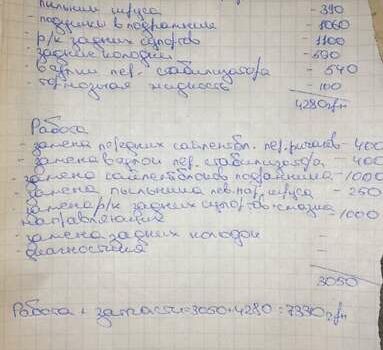 пыльник шруса - 390
- подушки в подрамник - 1060
- р/к задних супортов - 1100
- задние колодки - 690
- втулки пер. стабилизатора - 540
- тормозная жидкость - 100
4280грн
Работа
- замена передних сайлентбл. пер. рычагов - 400
- замена втулок пер. стабилизатора - 400
- замена сайлентблоков подрамника - 1000
- замена пыльника лев. пер. шруса - 250
- замена р/к задних супортов + смазка - 1000
направляющих
- замена задних колодок -
- диагностика -
3050
Работа + запчасти = 3050 + 4280 = 7330грн